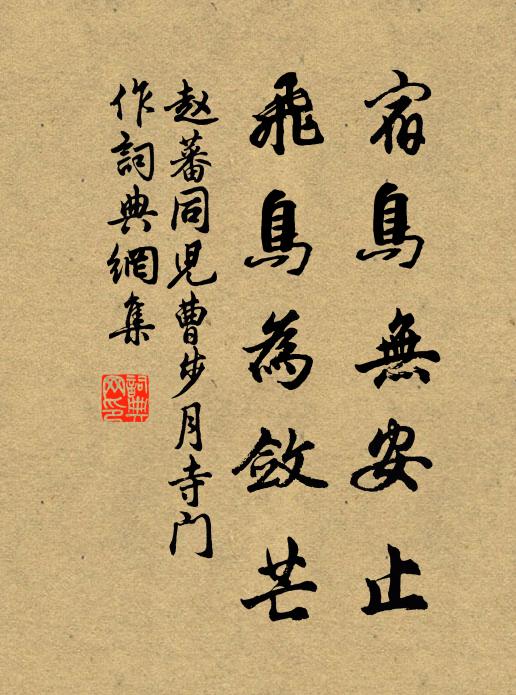 宿鳥無安止
飛鳥為斂芒
赵蕃同児曹步月寺门
作詞典網集
詞典網印